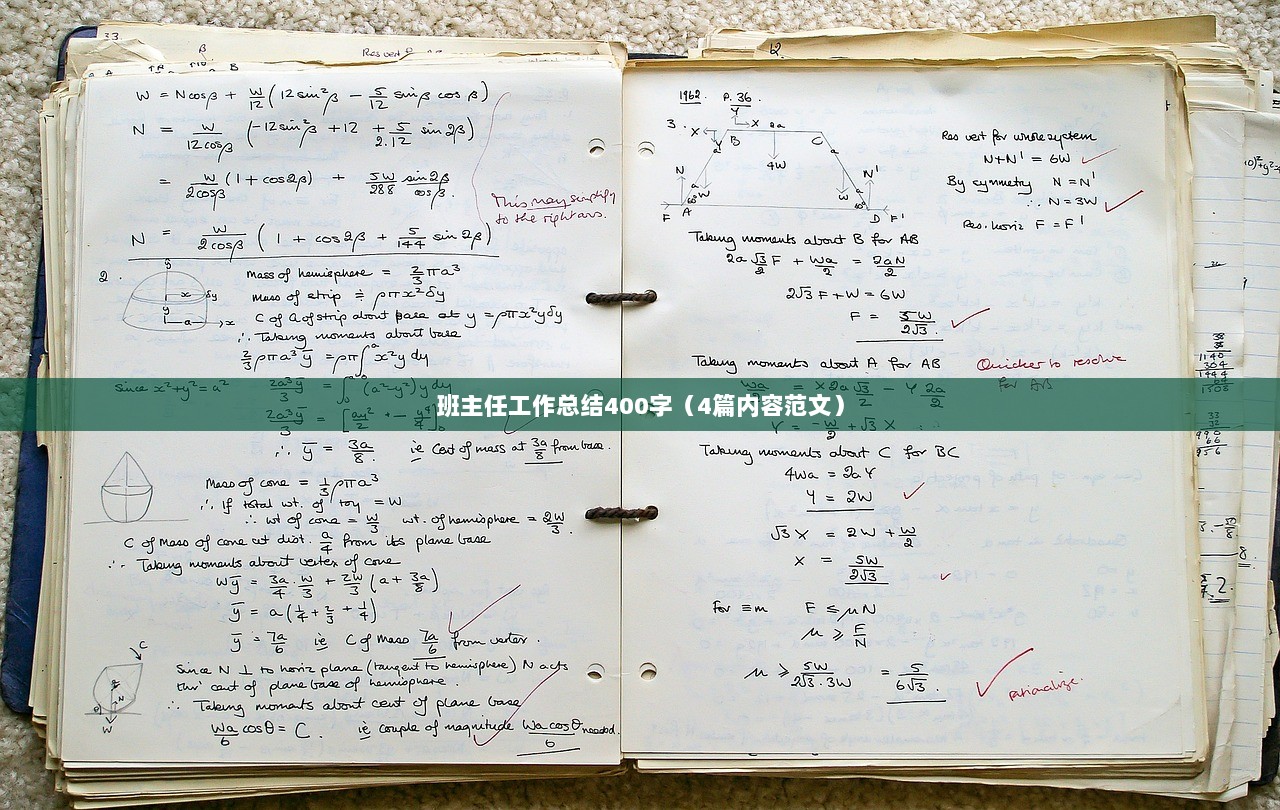 33.
Res vert
β
A B
W = N cos β + W/12 (12 sin² β − 5/12 sin β cos β)
N = W/12 cos β (−12 sin² β + 12 + 5/2.12 sin 2β)
= W/2cosβ (1 + cos 2β) + 5W/288 sin 2β/cos β.
This may simplify
to the right ans.
N = W/2cosβ (1 + cos 2β + 5/144 sin 2β)
2.
y
x δy
y
a x
Mass of hemisphere = 2/3 πa³
Mass of strip ≑ ρπx²δy
C of G of strip about base at y = ρπx²yδy
∴ Taking moments about base
2/3 ρπa³ȳ = ρπ∫₀ᵃ x²y dy
Since x²+y² = a² 2a³ȳ/3 = ∫₀ᵃ (a²−y²) y dy
2a³ȳ/3 =
∴ ȳ = 3a/8. ie Cent of mass at 3a/8 from base.
Mass of cone = 1/3 ρπa³
∴ If total wt. of toy = W
∴ wt of cone = W/3 wt. of hemisphere = 2W/3.
C of Mass of cone at dist. a/4 from its plane base
∴ Taking moments about vertex of cone
Wȳ = 3a/4 . W/3 + 2W/3 (a + 3a/8)
ȳ = a(1/4 + 2/3 + 1/4)
ȳ = 7a/6 ie C of Mass 7a/6 from vertex.
C
θ N
W
Since N ⊥ to horiz plane (tangent to hemisphere) N acts
thro' cent of plane base of hemisphere.
∴ Taking moments about cent of plane base
Wa/6 cos θ = C. ie couple of magnitude Wa cos θ/6 needed.
12
1962. P. 36.
3. X Y X 2a
B C
a 4W a
N N'
a W W a
60° 60°
F A D F'
Res vert for whole system
N+N' = 6W
By symmetry N = N'
∴ N = 3W
Res. horiz F = F'
Taking moments about B for AB
2a √3/2 F + Wa/2 = 2aN/2
2√3 F + W = 6W
F = 5W/2√3.
Taking moments about A for AB
Quicker to resolve
for AB
Wa/2 = X 2a √3/2 − Y 2a/2
Y = −W/2 + √3 X
班主任工作总结400字（4篇内容范文）
Taking moments about C for BC
4Wa = 2aY
Y = 2W
√3 X = 2W + W/2
X = 5W/2√3
For ≡m F ≤ μN
μ ≥ F/N
μ ≥ 5W/2√3.3W = 5/6√3.
rationalize.
38
38
1140
304
1444
64
1508
33